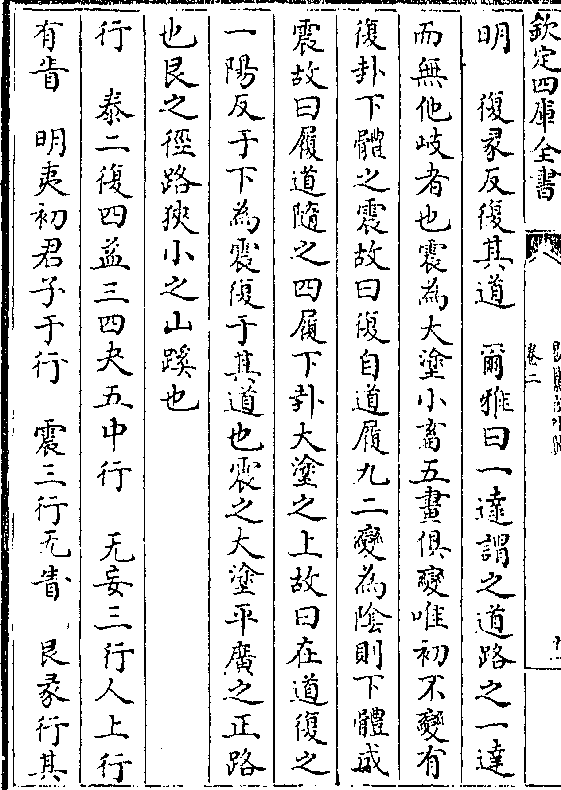 欽定四庫全書
卷二
明　復彖反復其道　爾雅曰一達謂之道路之一達
而無他岐者也震為大塗小畜五畫俱變唯初不變有
復卦下體之震故曰復自道履九二變為隂則下體成
震故曰履道隨之四履下卦大塗之上故曰在道復之
一陽反于下為震復于其道也震之大塗平廣之正路
也艮之徑路狹小之山蹊也
行　泰二復四益三四夬五中行　无妄三行人上行
有眚　明夷初君子于行　震三行无眚　艮彖行其